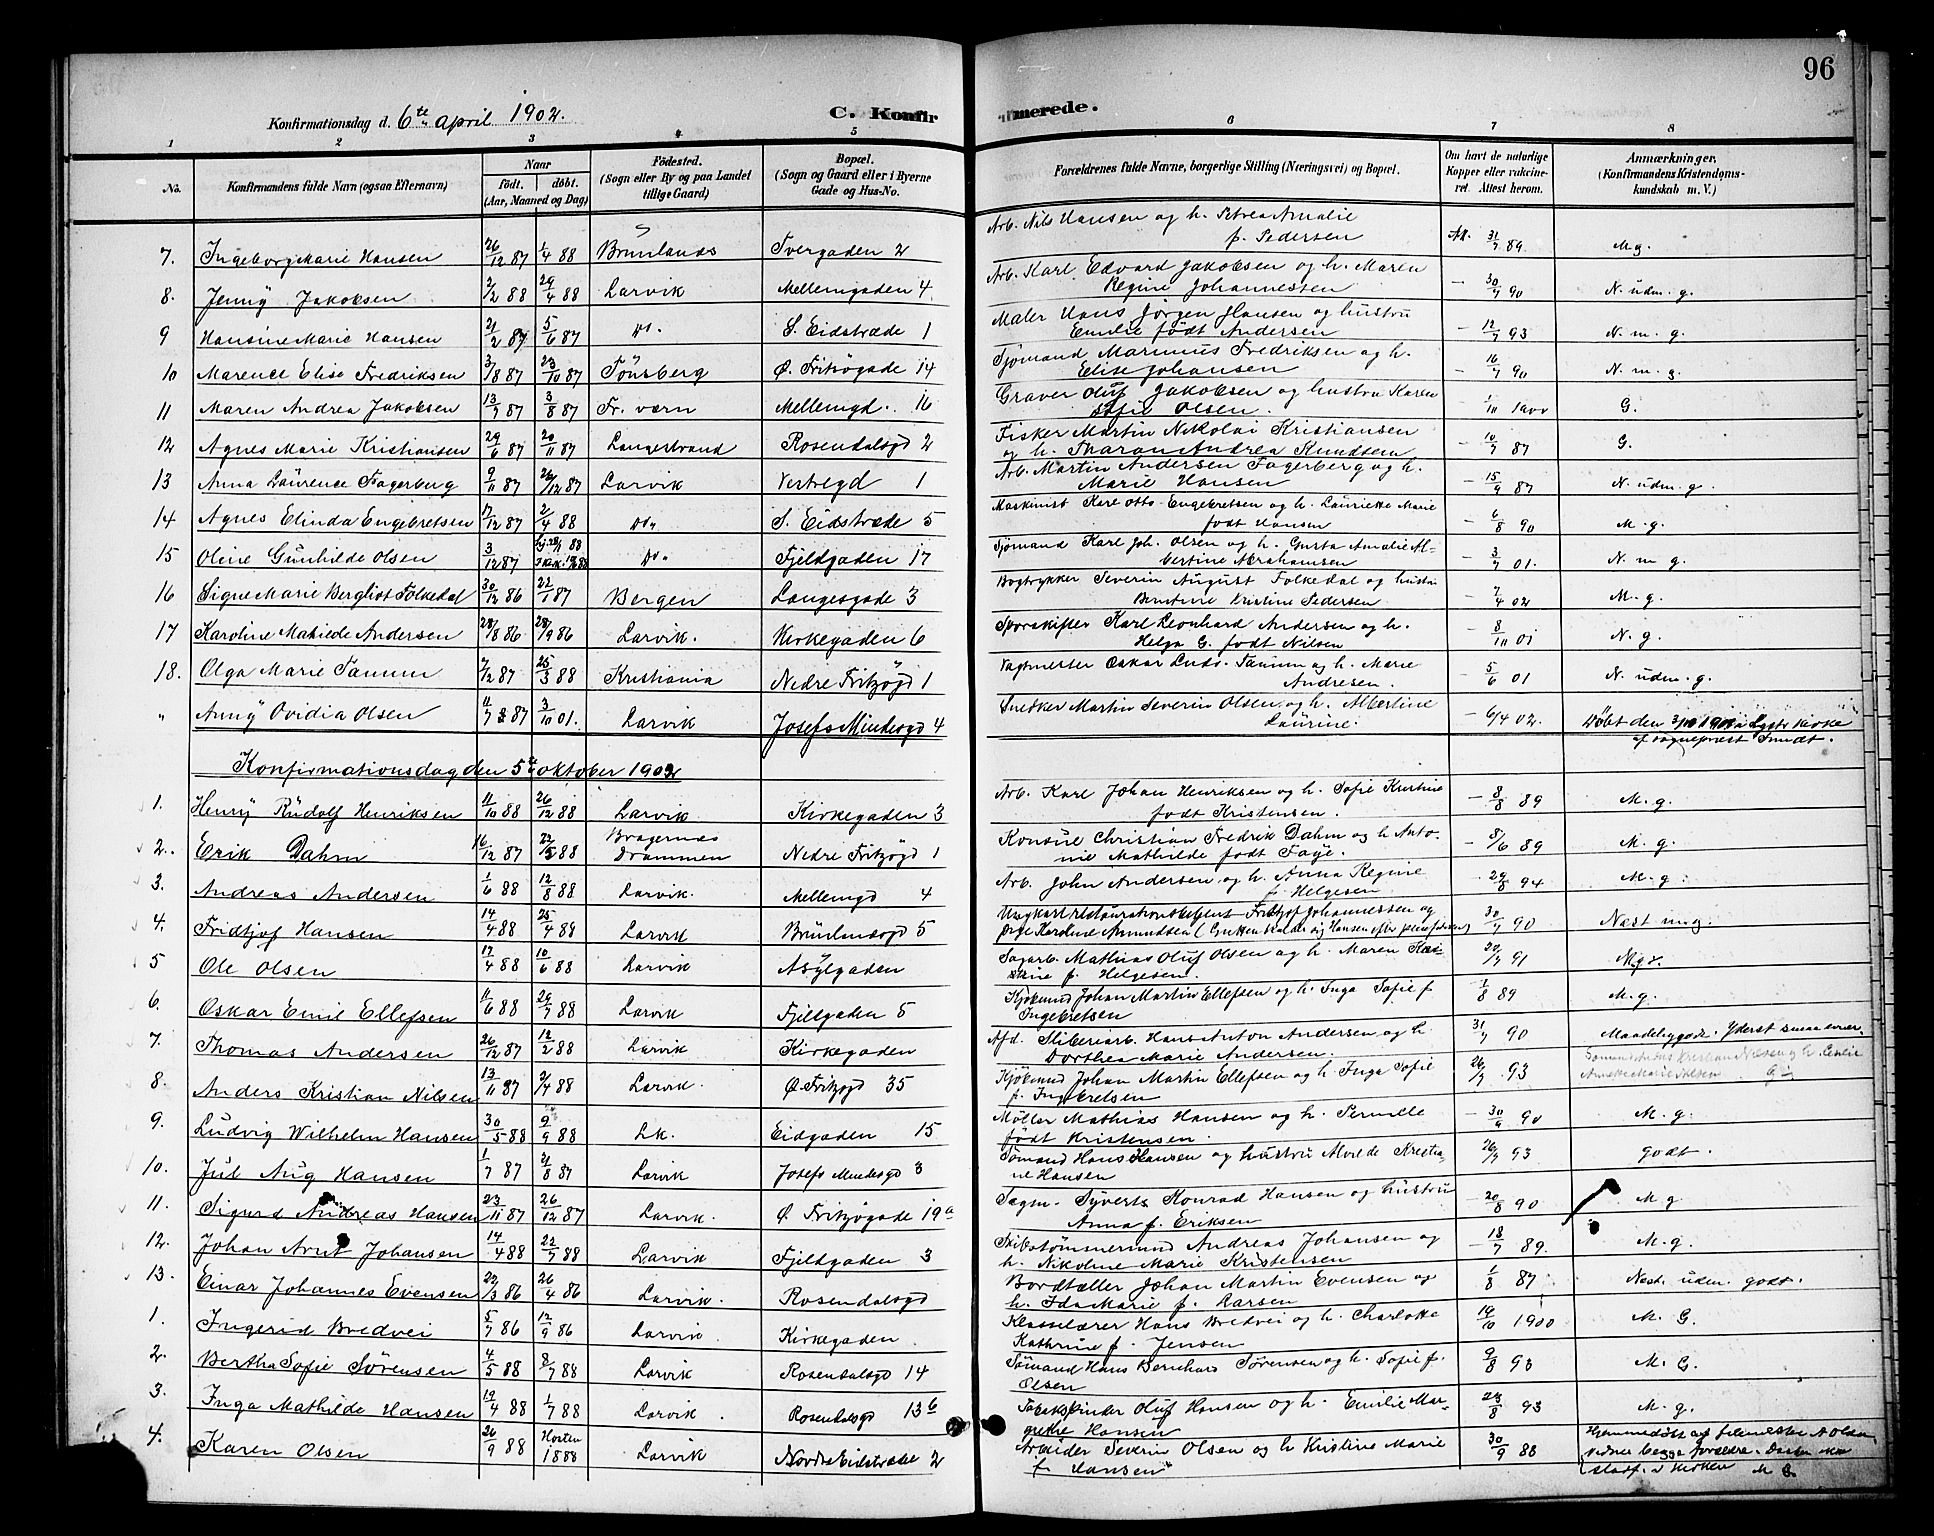 96
Konfirmationsdag d. 6te april 1902.
C. Konfirmerede.
1 2 3 4 5 6 7 8
No.
Konfirmandens fulde Navn (ogsaa Efternavn)
Naar
födt. döbt.
(Aar, Maaned og Dag)
Födested.
(Sogn eller By og paa Landet
tillige Gaard)
Bopæl.
(Sogn og Gaard eller i Byerne
Gade og Hus-No.
Forældrenes fulde Navne, borgerlige Stilling (Næringsvei) og Bopæl.
Om havt de naturlige
Kopper eller vakcine-
ret. Attest herom.
Anmærkninger.
(Konfirmandens Kristendoms-
kundskab m. V.)
Arb. Nils Hansen og h. Petrea Amalie
7. Ingeborg Marie Hansen 26/12 87 1/4 88 Brunlands Tvergaden 2 f. Pedersen 31/7 89 M g.
Arb. Karl Edvard Jakobsen og h. Maren
8. Jenny Jakobsen 2/2 88 29/4 88 Larvik Mellemgaden 4. Regine Johannessen – 30/7 90 N. udm. g.
Maler Hans Jörgen Hansen og hustru
9 Hansine Marie Hansen 21/2 87 5/6 87 Do. S. Eidstræde 1 Emilie födt Andersen – 12/7 93 N. m. g.
Sjömand Marinius Fredriksen og h.
10 Marence Elise Fredriksen 3/8 87 23/10 87 Tönsberg Ø. Fritzögade 14 Elise Johansen – 16/7 90 N. m. g.
Graver Oluf Jakobsen og hustru Karen
11 Maren Andrea Jakobsen 13/7 87 3/8 87 Fr. værn Mellemgd. 16 Sofie Olsen. – 1/11 1900 G.
Fisker Martin Nikolai Kristiansen
12 Agnes Marie Kristiansen 29/6 87 20/11 87 Langestrand Rosendalsgd 2 og h. Tharan Andrea Knudsen – 10/7 87 G.
Arb. Martin Andersen Fagerberg og h.
13 Anna Laurence Fagerberg 9/11 87 26/12 87 Larvik Vestregd 1 Marie Hansen – 15/9 87 N. udm. g.
Maskinist Karl Otto Engebretsen og h. Lauriette Marie
14 Agnes Elinda Engebretsen 17/12 87 2/4 88 Do. S. Eidstræde 5 födt Hansen – 6/8 90 M. g.
Sjömand Karl Joh. Olsen og h. Gusta Amalie Al-
15 Oline Gunhilde Olsen 3/12 87 Do. Fjeldgaden 17 bertine Abrahamsen – 3/7 01. N. m g.
Bogtrykker Severin August Folkedal og hustru
16 Signe Marie Bergliot Folkedal 30/12 86 22/1 87 Bergen Langesgade 3 Berntine Kristine Pedersen – 7/4 02 M. g.
Sporskifter Karl Leonhard Andersen og h.
17 Karoline Mathilde Andersen 28/8 86 28/9 86 Larvik. Kirkegaden 6 Helga G. födt Nilsen – 8/11 01 N. g.
Vagtmester Oskar Ludv. Tanum og h. Marie
18. Olga Marie Tanum 7/12 87 25/3 88 Kristiania Nedre Fritzögd 1 Andresen. – 5/6 01 N. udm. g.
Snedker Martin Severin Olsen og h. Albertine
" Anny Ovidia Olsen 11/7 87 3/10 01. Larvik Josefs Mindesgd 4 Laurine. – 6/4 02. Döbt den 3/10 1901 i kirke
af sogneprest Smidt.
Konfirmationsdag den 5te oktober 1902
Arb. Karl Johan Henriksen og h. Sofie Kristine
1. Henry Rudolf Henriksen 11/10 88 26/12 88 Larvik Kirkegaden 3 födt Kristensen. – 8/8 89 M. g.
Konsul Christian Fredrik Dahm og h Anto-
2. Erik Dahm 16/12 87 22/3 88 Bragernes Drammen Nedre Fritzögd 1 nie Mathilde födt Faye. – 8/6 89 M. g.
Arb. John Andersen og h. Anna Regine
3. Andreas Andersen 1/6 88 12/8 88 Larvik. Mellemgd 4 f. Helgesen. 29/8 94 M. g.
Ungkarl restaurationsbetjent Fritjof Johannessen og
4. Fridtjof Hansen 14/4 88 25/4 88 Larvik Brunlansgd 5 pige Karoline Amundsen 30/7 90 Næst m g.
Sagarb. Mathias Oluf Olsen og h. Maren Kri-
5 Ole Olsen 17/4 88 10/6 88 Larvik Asylgaden stine f. Helgesen. 20/7 91 Mg.
Kjöbmand Johan Martin Ellefsen og h. Inga Sofie f.
6. Oskar Emil Ellefsen 11/6 88 29/7 88 Larvik Fjellgaden 5 Ingebretsen 1/8 89 M. g.
Afd. Sliberiarb. Hans Anton Andersen og h.
7. Thomas Andersen 26/12 87 12/2 88 Larvik Kirkegaden Dorthea Marie Andersen. 31/7 90
Kjöbmand Johan Martin Ellefsen og h. Inga Sofie
8. Anders Kristian Nilsen 13/11 87 2/4 88 Larvik. Ø. Fritzögd 35 f. Ingebretsen 26/7 93
Möller Mathias Hansen og h. Pernille
9. Ludvig Wilhelm Hansen 30/5 88 9/9 88 Lk. Eidgaden 15 födt Kristensen. – 30/9 90 M. g.
Sömand Hans Hansen og hustru Alvilde Kristia-
10. Jul Aug Hansen 1/7 87 21/8 87 Larvik Josefs Mindesgd 3 ne Hansen 26/7 93 godt.
Sagm. Syvert Konrad Hansen og hustru
11. Sigurd Andreas Hansen 23/11 87 26/12 87 Larvik. Ø. Fritzögade 19a Anna f. Eriksen – 20/8 90 M g.
Skibstömmermand Andreas Johansen og
12. Johan Arnt Johansen 14/4 88 22/7 88 Larvik Fjeldgaden 3 h. Nikoline Marie Kristensen – 18/7 89. M. g.
Bordtæller Johan Martin Evensen og
13. Einar Johannes Evensen 22/3 86 26/4 86 Larvik. Rosendalsgd h. Ida Marie f. Larsen 1/8 87 Næst. udm. godt.
Klasselærer Hans Bredvei og h. Charlotte
1. Ingerid Bredvei 5/7 86 12/9 86 Larvik. Kirkegaden. Kathrine f. Jensen 19/10 1900 M. G.
Sömand Hans Bernhard Sörensen og h. Sofie f.
2. Bertha Sofie Sörensen 4/5 88 8/7 88 Larvik Rosendalsgd 14 Olsen 9/8 93 M. G.
Oluf Hansen og h. Emilie Mar-
3. Inga Mathilde Hansen 19/4 88 1/7 88 Larvik. Rosendalsgd 13b grethe Hansen 28/8 93 M. g.
Arbeider Severin Olsen og h Kristine Marie
4. Karen Olsen 26/9 88 Horten 1888 Larvik Nordre Eidstræde 2 f. Hansen 30/9 88 Hjemmedöbt af
begge forældre.